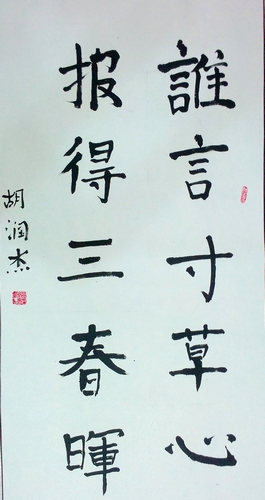 誰言寸草心
报得三春暉
胡润杰